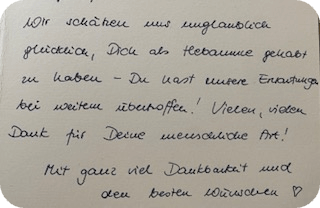 Wir schätzen uns unglaublich
glücklich, Dich als Hebamme gehabt
zu haben – Du hast unsere Erwartungen
bei weitem übertroffen! Vielen, vielen
Dank für Deine menschliche Art!
Mit ganz viel Dankbarkeit und
den besten Wünschen ♡